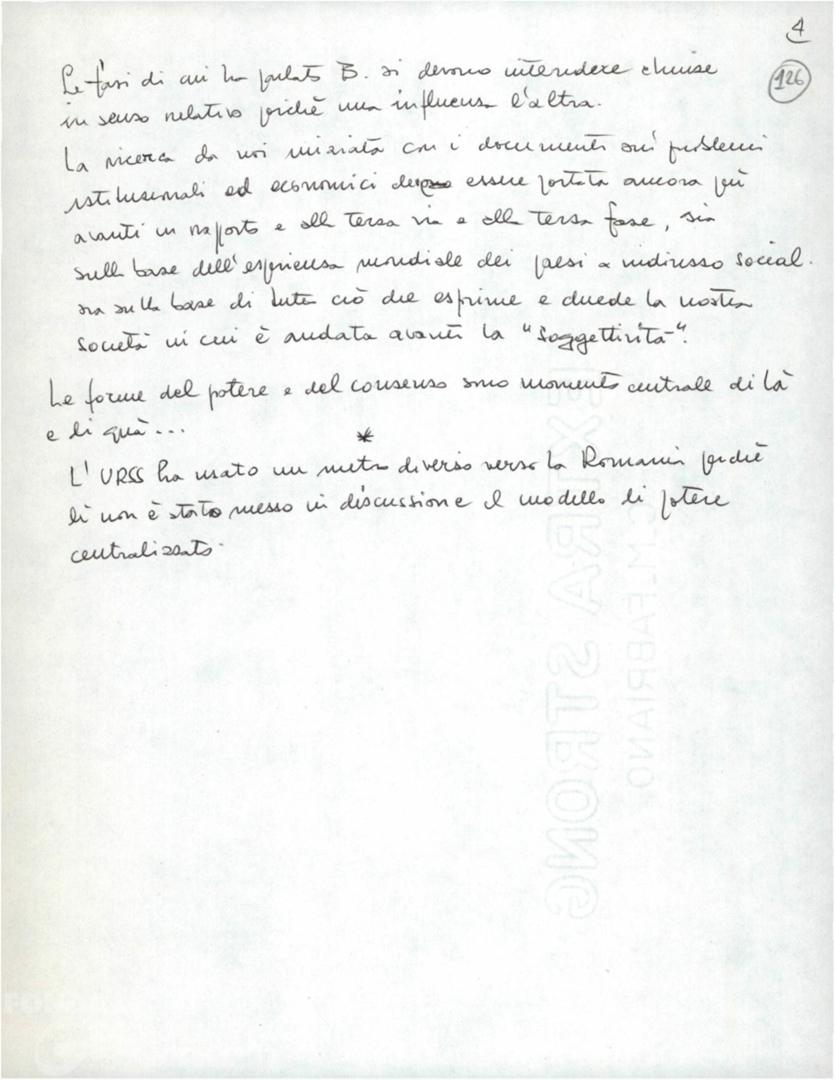 4
126
Le fasi di cui ha parlato B. si devono intendere chiuse
in senso relativo perchè una influenza l'altra.
La ricerca da noi iniziata con i documenti sui problemi
istituzionali ed economici deve essere portata ancora più
avanti in rapporto e alla terza via e alla terza fase, sia
sulla base dell'esperienza mondiale dei paesi a indirizzo social.
sia sulla base di tutto ciò che esprime e chiede la nostra
società in cui è andata avanti la "soggettività".
Le forme del potere e del consenso sono momento centrale di là
e di quà...
*
L'URSS ha usato un metro diverso verso la Romania perchè
lì non è stato messo in discussione il modello di potere
centralizzato.
EXTRA STRONG
C.M.FABRIANO